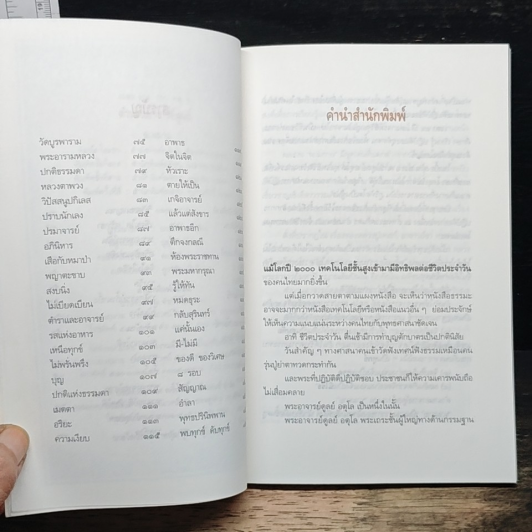 วัดบูรพาราม ๗๕
พระอารามหลวง ๗๗
ปกติธรรมดา ๗๙
หลวงตาพวง ๘๑
วิปัสสนูปกิเลส ๘๓
ปราบนักเลง ๘๕
ปรมาจารย์ ๘๗
อภินิหาร ๘๙
เสือกับหมาป่า ๙๑
พญาตะขาบ ๙๓
สงบนิ่ง ๙๕
ไม่เบียดเบียน ๙๗
ตำราและอาจารย์ ๙๙
รสแห่งอาหาร ๑๐๑
เหนือทุกข์ ๑๐๓
ไม่พรั่นพรึง ๑๐๕
บุญ ๑๐๗
ปกติแห่งธรรมดา ๑๐๙
เมตตา ๑๑๑
อริยะ ๑๑๓
ความเงียบ ๑๑๕
อาพาธ
จิตในจิต
หัวเราะ
ตายให้เป็น
เกจิอาจารย์
แล้วแต่สังขาร
อาพาธอีก
ตึกจงกลณี
ห้องพระราชทาน
พระมหากรุณา
รู้ให้ทัน
หมดธุระ
กลับสุรินทร์
แค่นั้นเอง
มี-ไม่มี
ของดี ของวิเศษ
๘ รอบ
สัญญาณ
อำลา
พุทธปรินิพพาน
พบทุกข์ ดับทุกข์
คำนำสำนักพิมพ์
แม้โลกปี ๒๐๐๐ เทคโนโลยีชั้นสูงเข้ามามีอิทธิพลต่อชีวิตประจำวัน
ของคนไทยมากยิ่งขึ้น
แต่เมื่อกวาดสายตาตามแผงหนังสือ จะเห็นว่าหนังสือธรรมะ
อาจจะมากกว่าหนังสือเทคโนโลยีหรือหนังสือแนวอื่น ๆ ย่อมประจักษ์
ให้เห็นความแนบแน่นระหว่างคนไทยกับพุทธศาสน์ชัดเจน
อาทิ ชีวิตประจำวัน ตื่นเช้ามีการทำบุญตักบาตรเป็นปกตินิสัย
วันสำคัญ ๆ ทางศาสนาคนเข้าวัดฟังเทศน์ฟังธรรมเหมือนคน
รุ่นปู่ย่าตาทวดกระทำกัน
และพระที่ปฏิบัติดีปฏิบัติชอบ ประชาชนก็ให้ความเคารพนับถือ
ไม่เสื่อมคลาย
พระอาจารย์ดูลย์ อตุโล เป็นหนึ่งในนั้น
พระอาจารย์ดูลย์ อตุโล พระเถระชั้นผู้ใหญ่ทางด้านกรรมฐาน